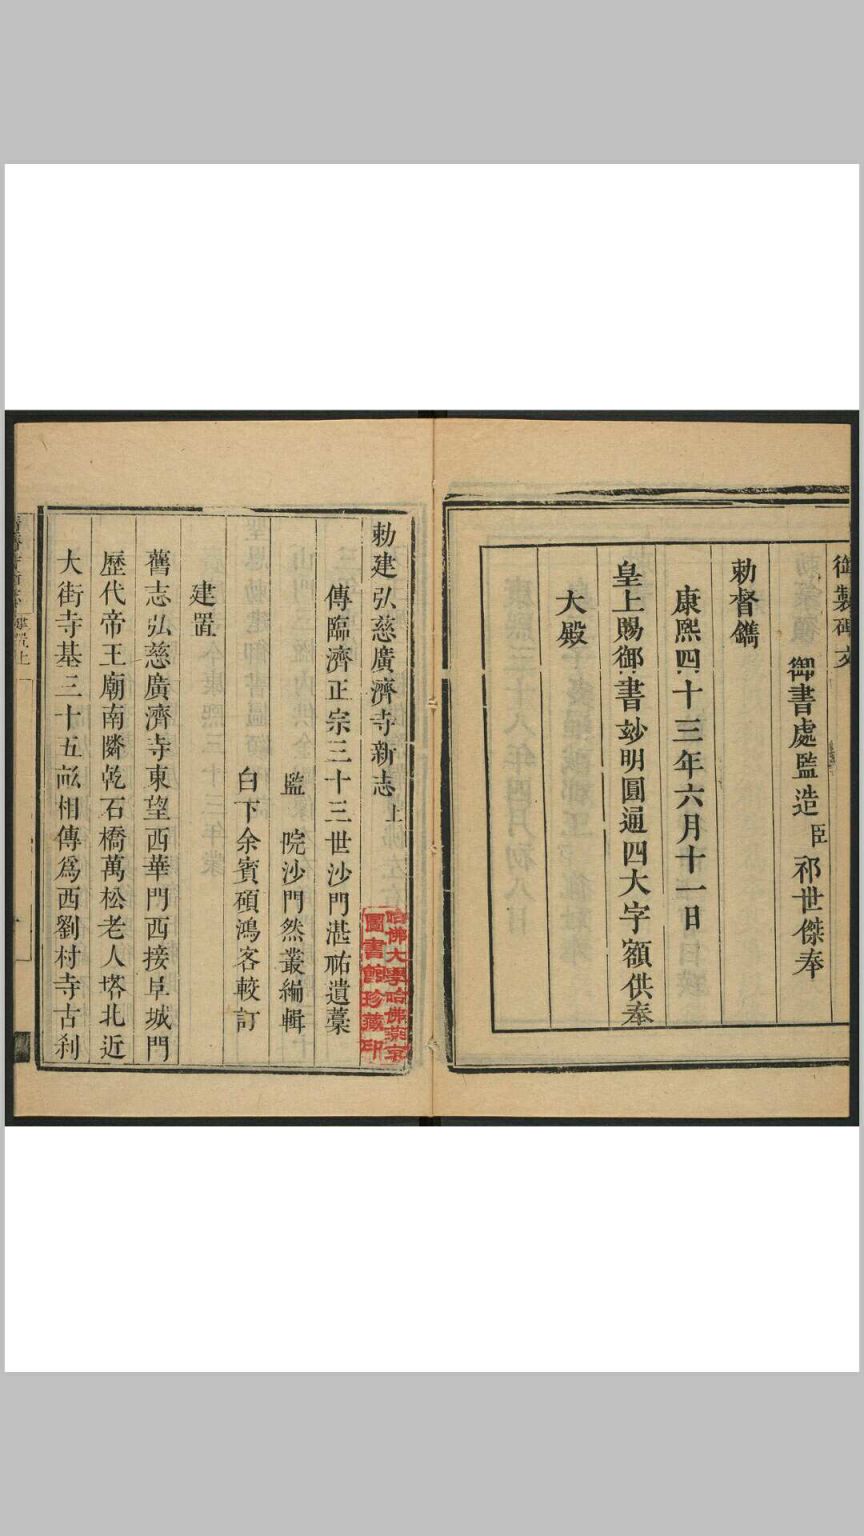 御製碑文
御書處監造臣祁世傑奉
勅督鐫
康熙四十三年六月十一日
皇上賜御書玅明圓通四大字額供奉
大殿
勅建弘慈廣濟寺新志上
傳臨濟正宗三十三世沙門湛祐遺藁
監院沙門然叢編輯
白下余賓碩鴻客較訂
建置
舊志弘慈廣濟寺東望西華門西接阜城門
歷代帝王廟南隣乾石橋萬松老人塔北近
大街寺基三十五畝相傳爲西劉村寺古刹
哈佛大學哈佛燕京
圖書館珍藏印